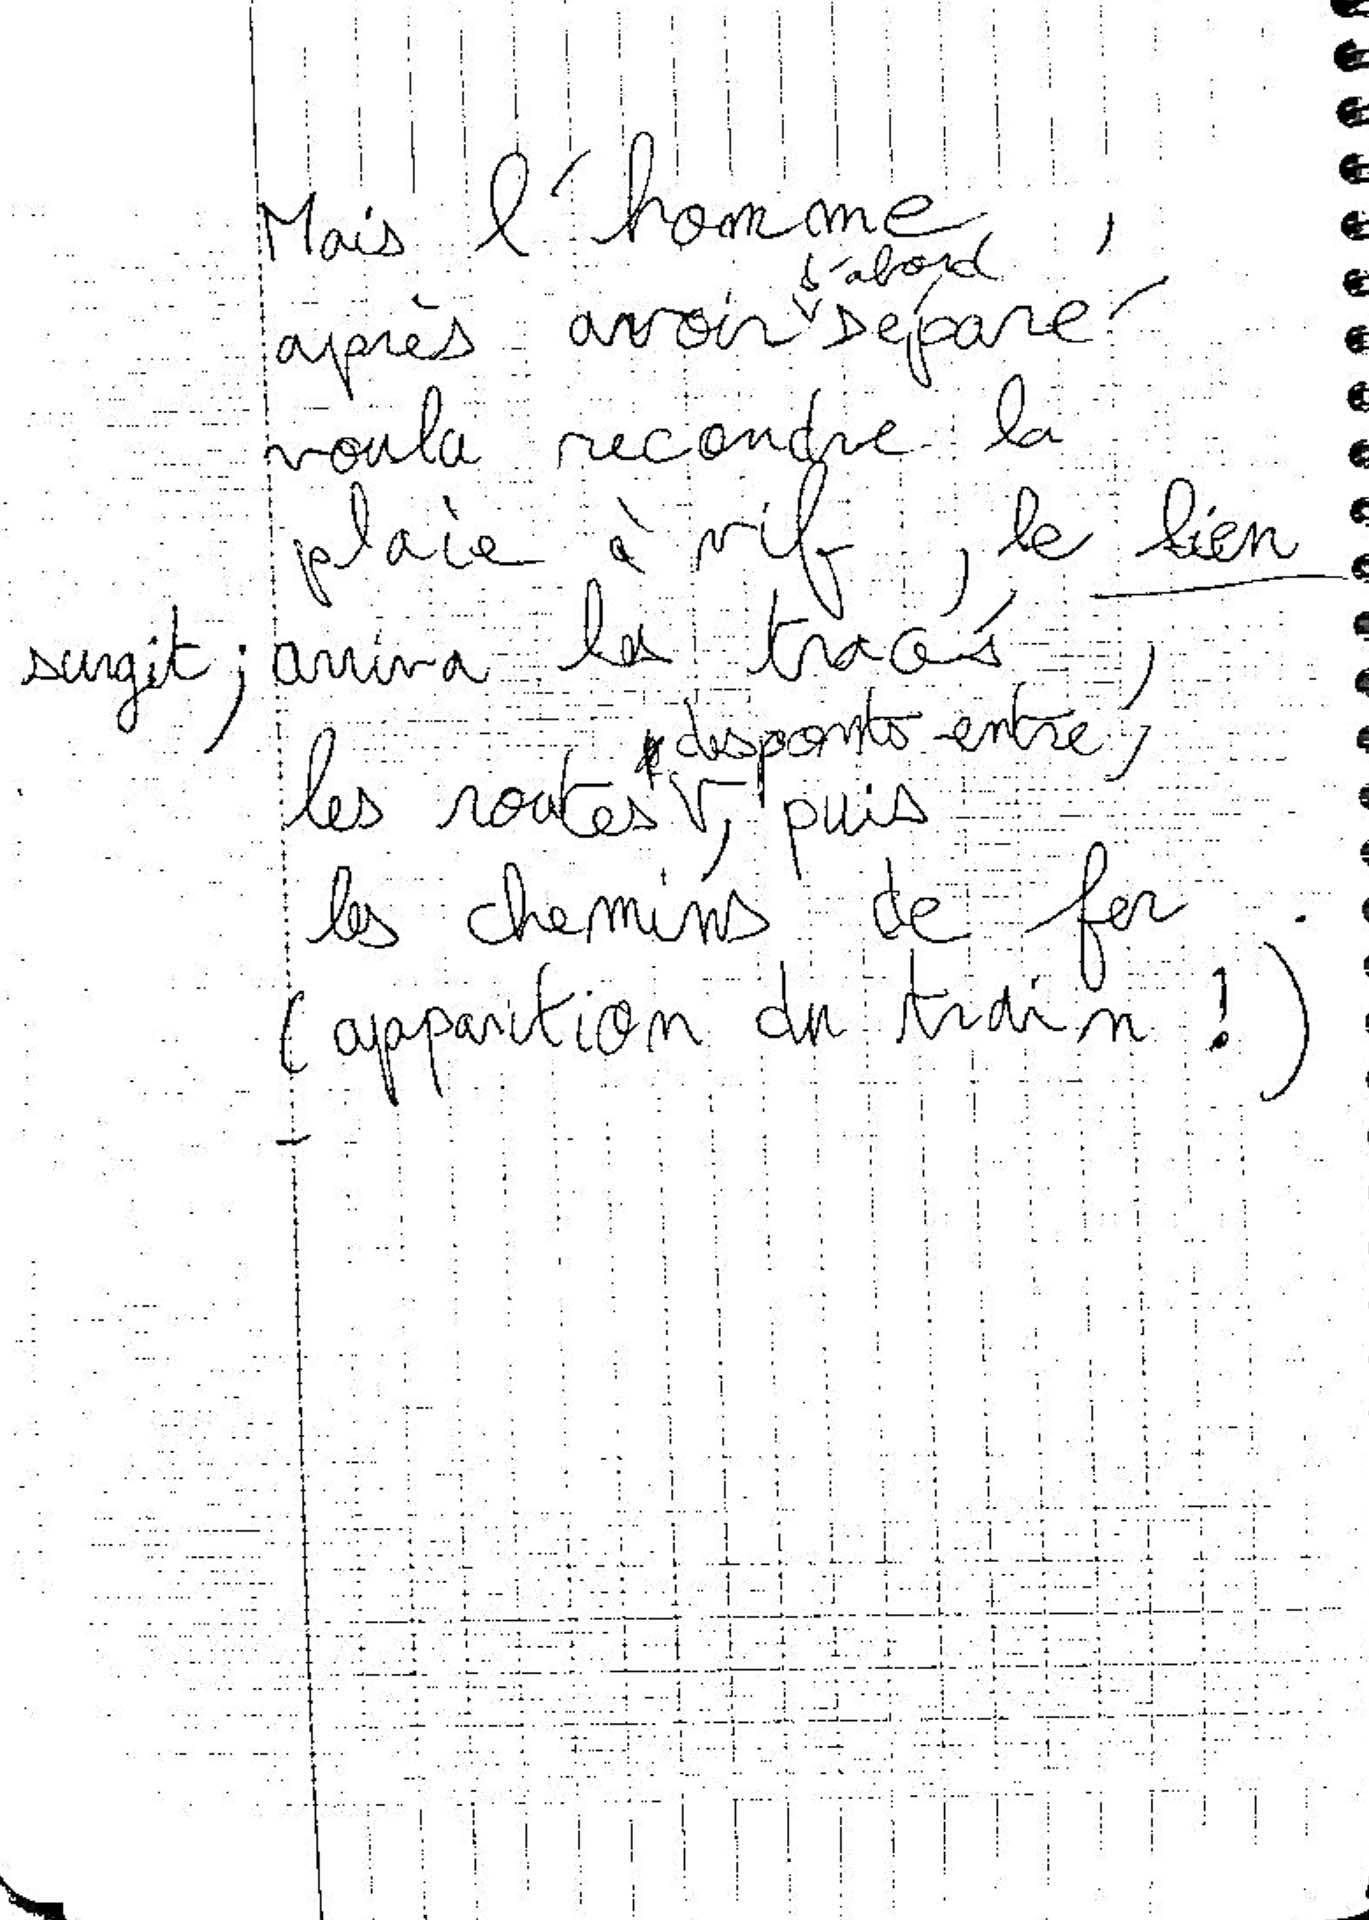 Mais l'homme,
d'abord
après avoir séparé
voula recoudre la
plaie à vif, le lien
surgit; arriva les tracés,
des ponts entre,
les routes, puis
les chemins de fer.
(apparition du train !)